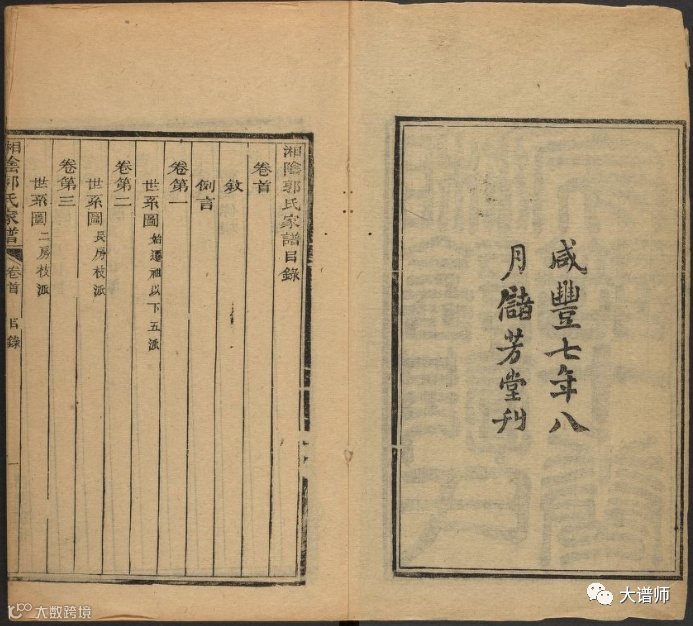 咸豐七年八
月儲芳堂刊
湘陰郭氏家譜目錄
卷首
敘
例言
卷第一
世系圖 始遷祖以下五派
卷第二
世系圖 長房枝派
卷第三
世系圖 二房枝派
湘陰郭氏家譜 卷首 目錄 一
大谱师
大数跨境